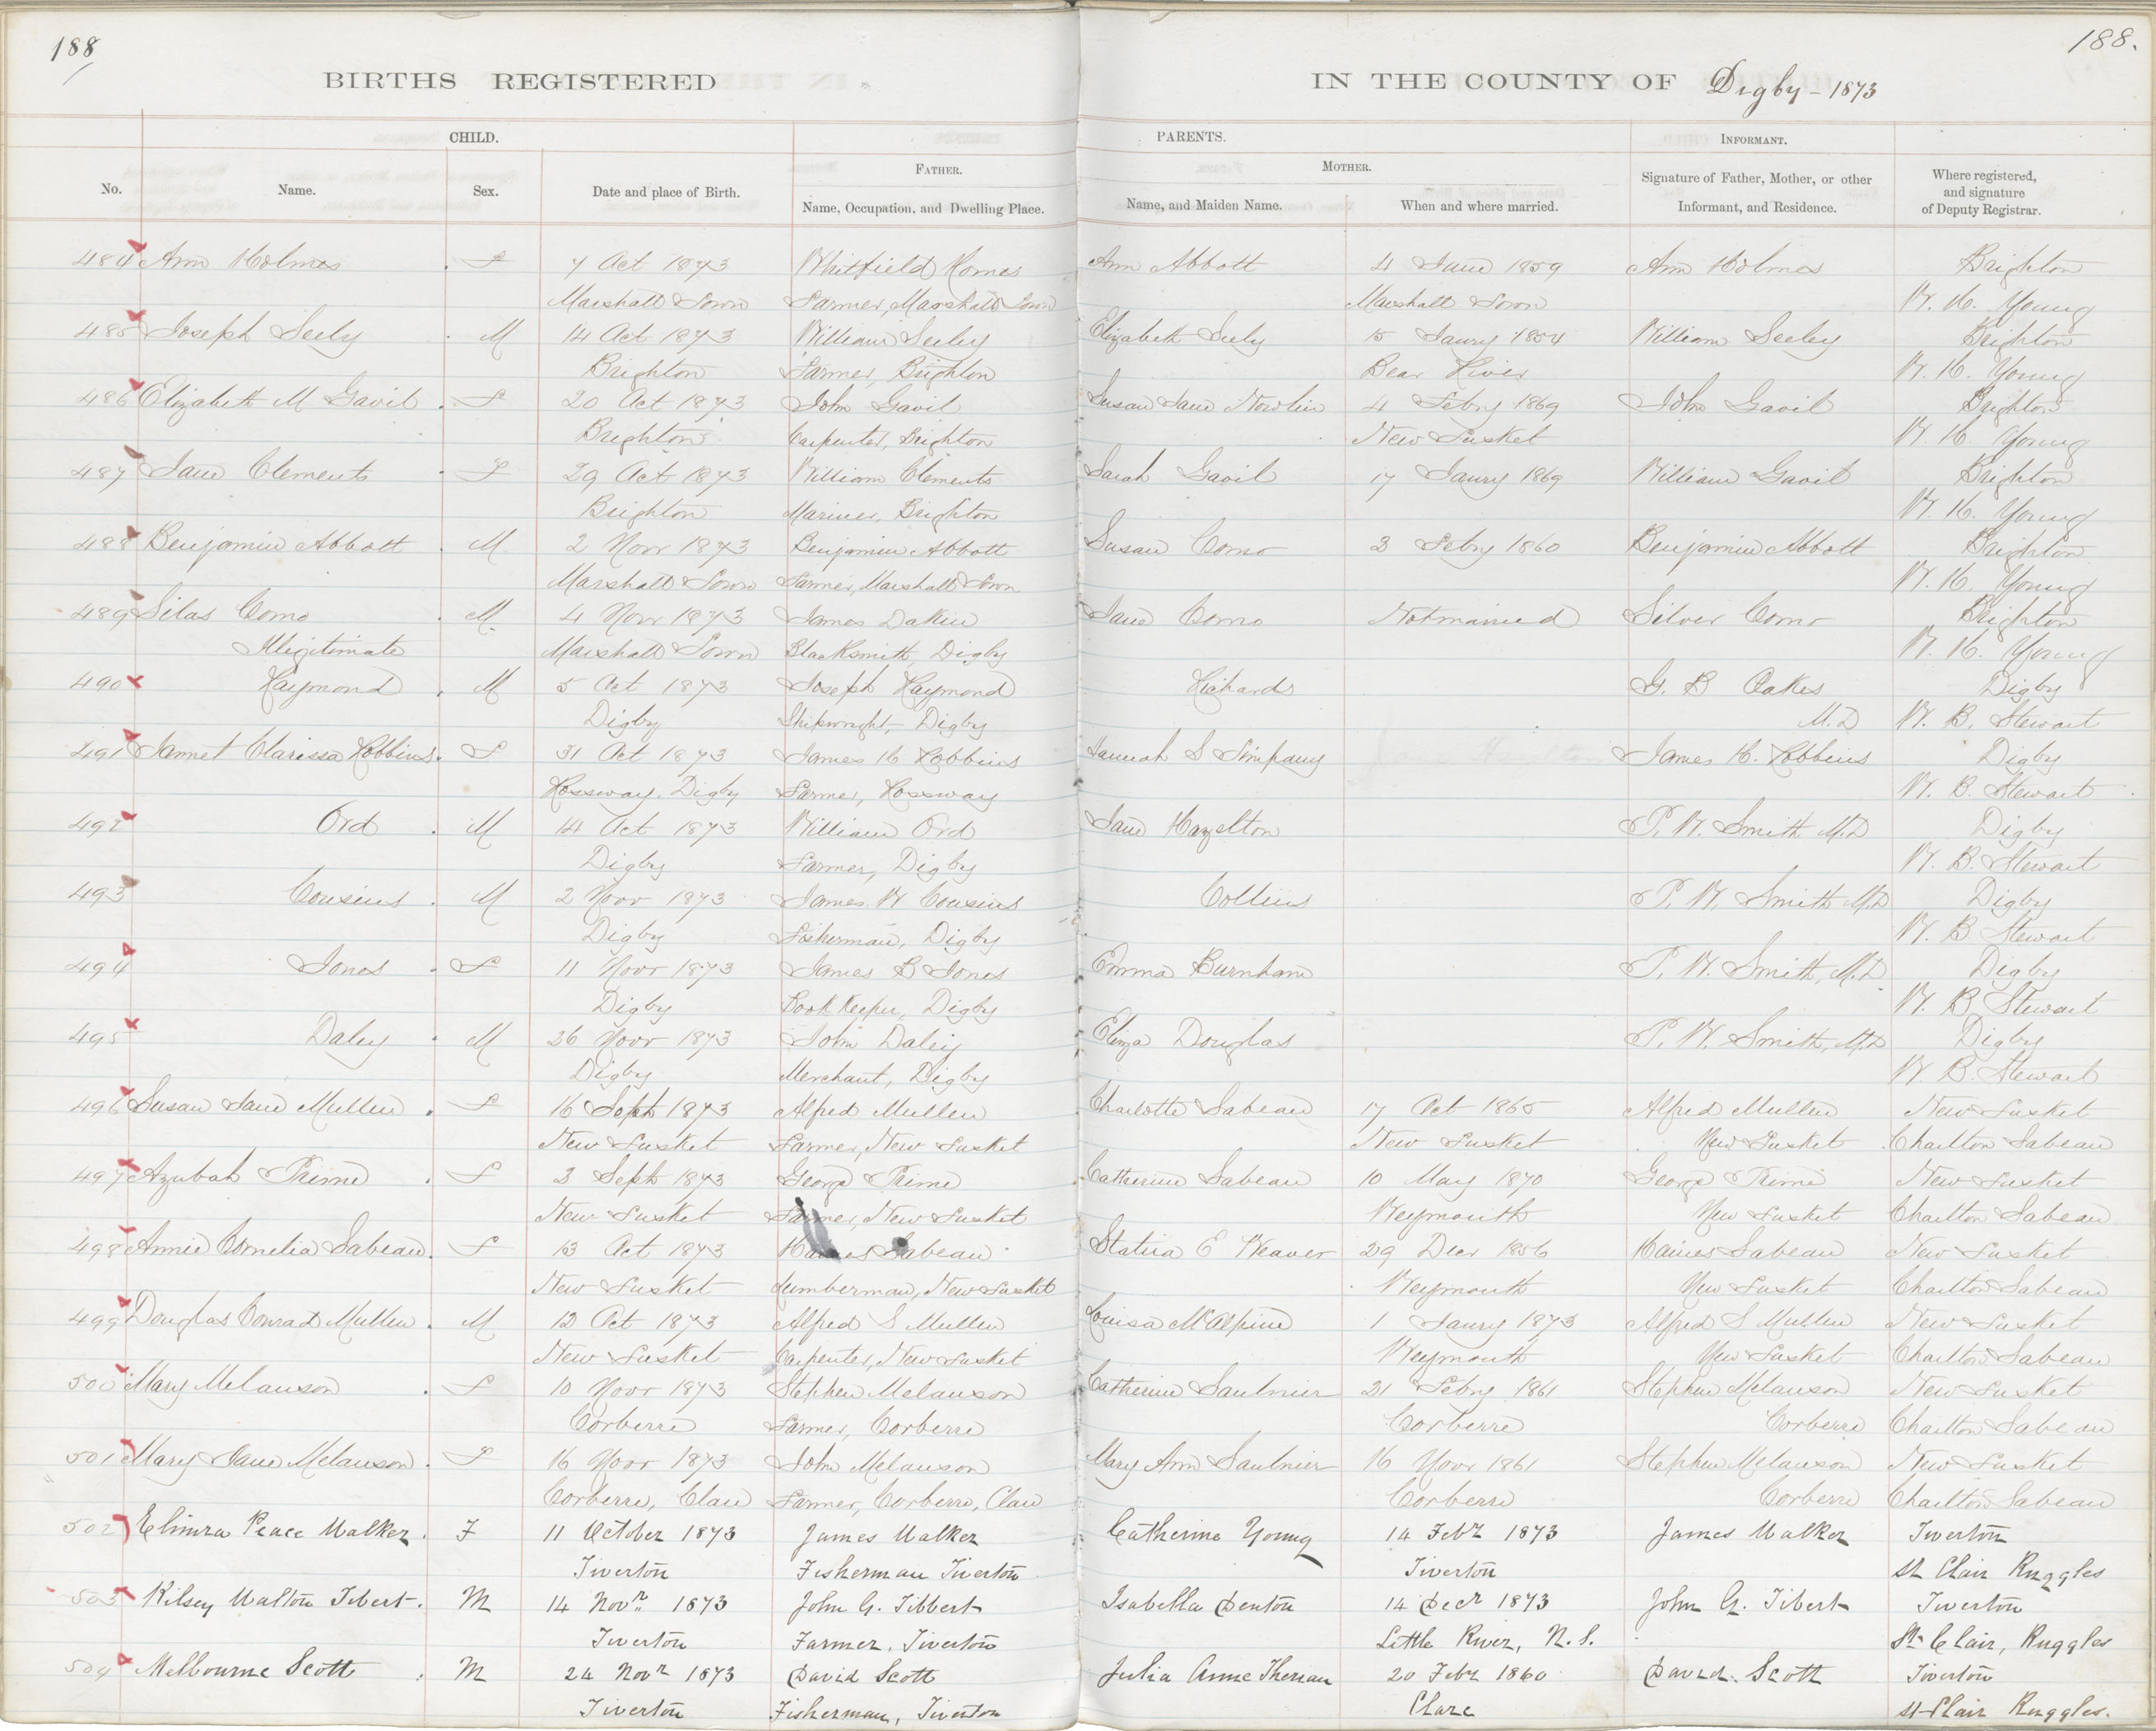 188
188.
BIRTHS REGISTERED IN THE COUNTY OF Digby - 1873
CHILD. PARENTS. INFORMANT.
FATHER. MOTHER.
No. Name. Sex. Date and place of Birth. Name, Occupation, and Dwelling Place. Name, and Maiden Name. When and where married. Signature of Father, Mother, or other Informant, and Residence. Where registered, and signature of Deputy Registrar.
484 Ann Holmes F 7 Oct 1873 Whitfield Homes Ann Abbott 4 June 1859 Ann Holmes Brighton
Marshall Town Farmer, Marshall Town Marshall Town W. H. Young
485 Joseph Seely M 14 Oct 1873 William Seeley Elizabeth Seely 15 Jaury 1854 William Seeley Brighton
Brighton Farmer, Brighton Bear River W. H. Young
486 Elizabeth M Gavil F 20 Oct 1873 John Gavil Susan Jane Nowlin 4 Febry 1869 John Gavil Brighton
Brighton Carpenter, Brighton New Tusket W. H. Young
487 Jane Clements F 29 Oct 1873 William Clements Sarah Gavil 17 Jaury 1869 William Gavil Brighton
Brighton Mariner, Brighton W. H. Young
488 Benjamin Abbott M 2 Novr 1873 Benjamin Abbott Susan Como 3 Febry 1860 Benjamin Abbott Brighton
Marshall Town Farmer, Marshall Town W. H. Young
489 Silas Como M 4 Novr 1873 James Dakin Jane Como Not married Silver Como Brighton
Illegitimate Marshall Town Blacksmith, Digby W. H. Young
490 Raymond M 5 Oct 1873 Joseph Raymond Richards G. B Oakes Digby
Digby Shipwright, Digby M.D W. B. Stewart
491 Jannet Clarissa Robbins F 31 Oct 1873 James H Robbins Hannah S Timpany James H. Robbins Digby
Rossway, Digby Farmer, Rossway W. B. Stewart
492 Ord M 14 Oct 1873 William Ord Jane Hazelton P. W. Smith M.D Digby
Digby Farmer, Digby W. B. Stewart
493 Cousins M 2 Novr 1873 James W Cousins Collins P. W. Smith M.D Digby
Digby Fisherman, Digby W. B Stewart
494 Jones F 11 Novr 1873 James B Jones Emma Burnham P. W. Smith, M.D Digby
Digby Book Keeper, Digby W. B. Stewart
495 Daley M 26 Novr 1873 John Daley Eliza Douglas P. W. Smith, M.D Digby
Digby Merchant, Digby W. B. Stewart
496 Susan Jane Mullen F 16 Sept 1873 Alfred Mullen Charlotte Sabean 17 Oct 1865 Alfred Mullen New Tusket
New Tusket Farmer, New Tusket New Tusket New Tusket Charlton Sabean
497 Azubah Prime F 3 Sept 1873 George Prime Catherine Sabean 10 May 1870 George Prime New Tusket
New Tusket Farmer, New Tusket Weymouth New Tusket Charlton Sabean
498 Annie Cornelia Sabean F 13 Oct 1873 Haines Sabean Statira E Weaver 29 Decr 1856 Haines Sabean New Tusket
New Tusket Lumberman, New Tusket Weymouth New Tusket Charlton Sabean
499 Douglas Conrad Mullen M 12 Oct 1873 Alfred S Mullen Louisa McAlpine 1 Jaury 1873 Alfred S Mullen New Tusket
New Tusket Carpenter, New Tusket Weymouth New Tusket Charlton Sabean
500 Mary Melanson F 10 Novr 1873 Stephen Melanson Catherine Saulnier 21 Febry 1861 Stephen Melanson New Tusket
Corberre Farmer, Corberre Corberre Corberre Charlton Sabean
501 Mary Jane Melanson F 16 Novr 1873 John Melanson Mary Ann Saulnier 16 Novr 1861 Stephen Melanson New Tusket
Corberre, Clare Farmer, Corberre, Clare Corberre Corberre Charlton Sabean
502 Elmira Peace Walker F 11 October 1873 James Walker Catherine Young 14 Febr 1873 James Walker Tiverton
Tiverton Fisherman Tiverton Tiverton St Clair Ruggles
503 Kilsey Walton Tibert M 14 Novr 1873 John G. Tibbert Isabella Denton 14 Decr 1873 John G. Tibert Tiverton
Tiverton Farmer, Tiverton Little River, N.S. St. Clair, Ruggles
504 Melbourne Scott M 24 Novr 1873 David Scott Julia Anne Therian 20 Febr 1860 David Scott Tiverton
Tiverton Fisherman, Tiverton Clare St Clair Ruggles.